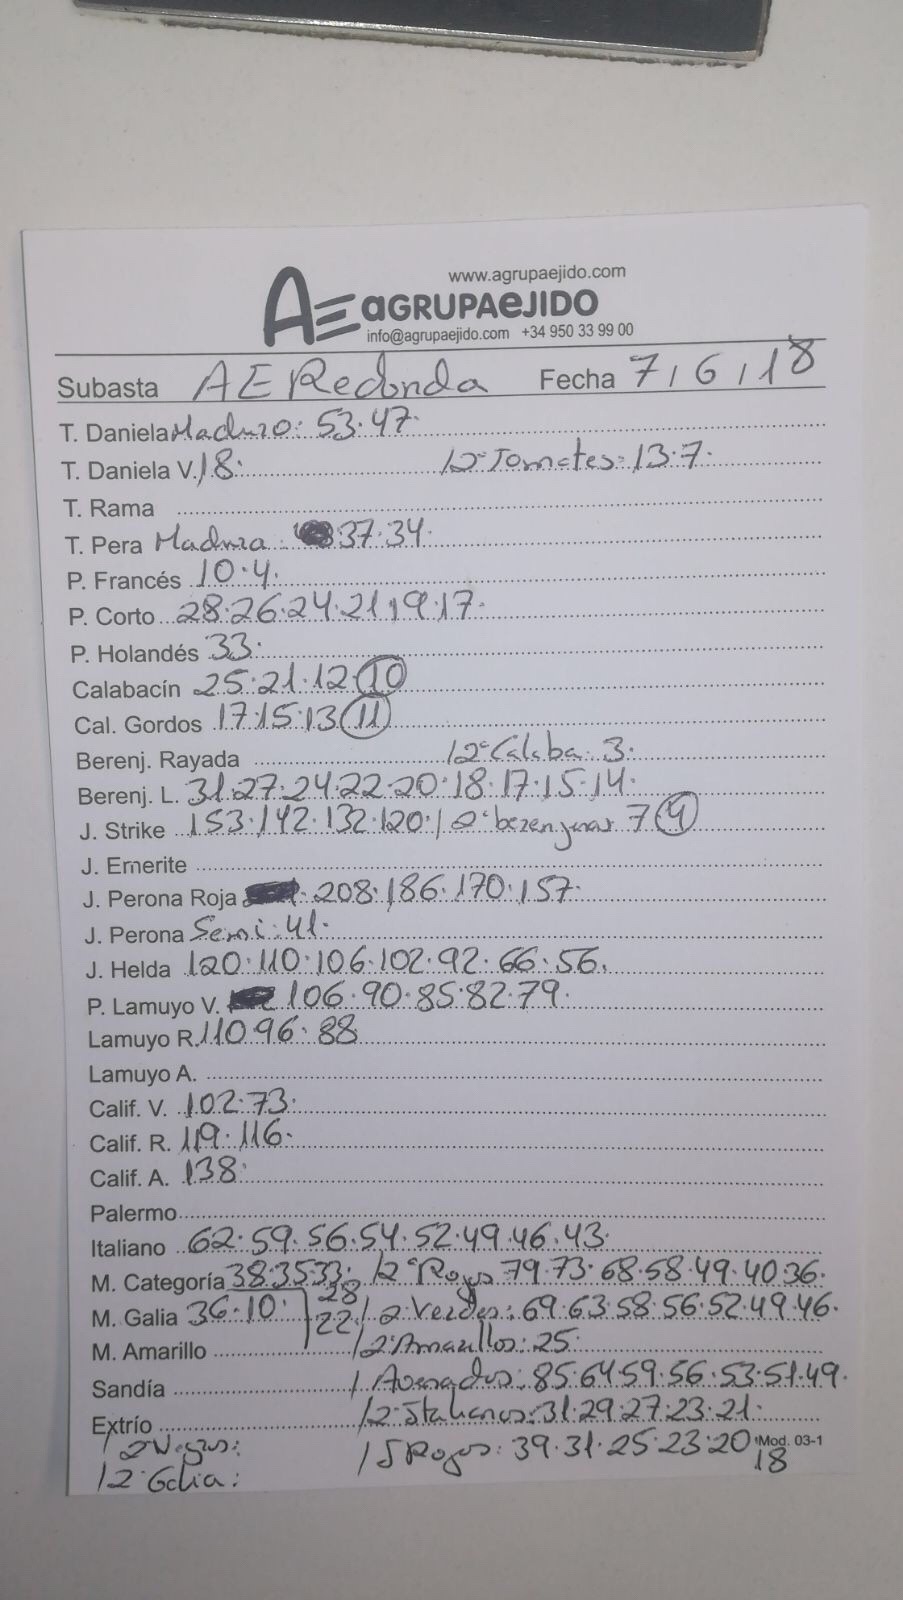 www.agrupaejido.com
AE aGRUPAeJIDO
info@agrupaejido.com +34 950 33 99 00
Subasta AE Redonda Fecha 7/6/18
T. Daniela Maduro: 53.47.
T. Daniela V. 18. /2ª Tomates: 13.7.
T. Rama
T. Pera Madura: 37.34.
P. Francés 10.4.
P. Corto 28.26.24.21.19.17.
P. Holandés 33.
Calabacín 25.21.12.10
Cal. Gordos 17.15.13 11
Berenj. Rayada /2ª Calaba: 3.
Berenj. L. 31.27.24.22.20.18.17.15.14.
J. Strike 153.142.132.120. /2ª berenjenas 7
J. Emerite
J. Perona Roja 208.186.170.157.
J. Perona Semi: 41.
J. Helda 120.110.106.102.92.66.56.
P. Lamuyo V. 106.90.85.82.79.
Lamuyo R. 110.96.88
Lamuyo A.
Calif. V. 102.73.
Calif. R. 119.116.
Calif. A. 138.
Palermo
Italiano 62.59.56.54.52.49.46.43.
M. Categoría 38.35.33. 28 /2ª Rojos 79.73.68.58.49.40.36.
M. Galia 36.10. 22 /2 Verdes: 69.63.58.56.52.49.46.
M. Amarillo /2ª Amarillos: 25.
Sandía / Asurados: 85.64.59.56.53.51.49.
Extrío /2ª Italianos: 31.29.27.23.21.
/2 Negros: /5 Rojos: 39.31.25.23.20 Mod. 03-1
/2ª Galia: 18